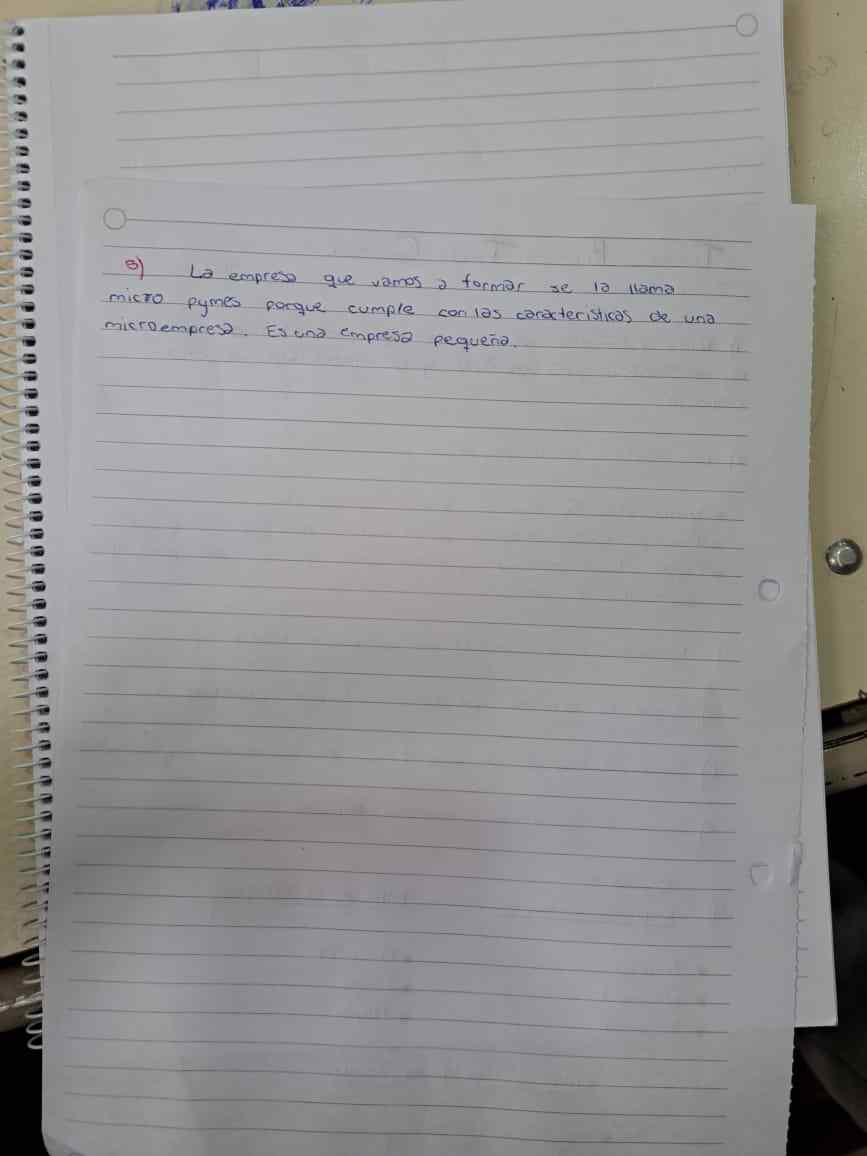 B) La empresa que vamos a formar se la llama
micro pymes porque cumple con las caracteristicas de una
microempresa. Es una empresa pequeña.